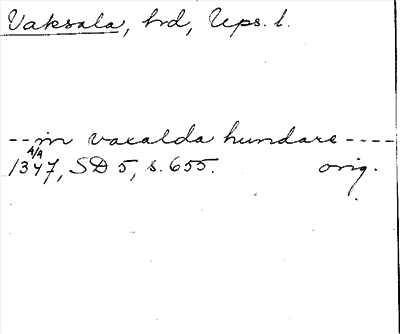 Vaksala, hd, Ups. l.
-- in vacalda hundare ----
4/9
1347, SD 5, s. 655. orig.